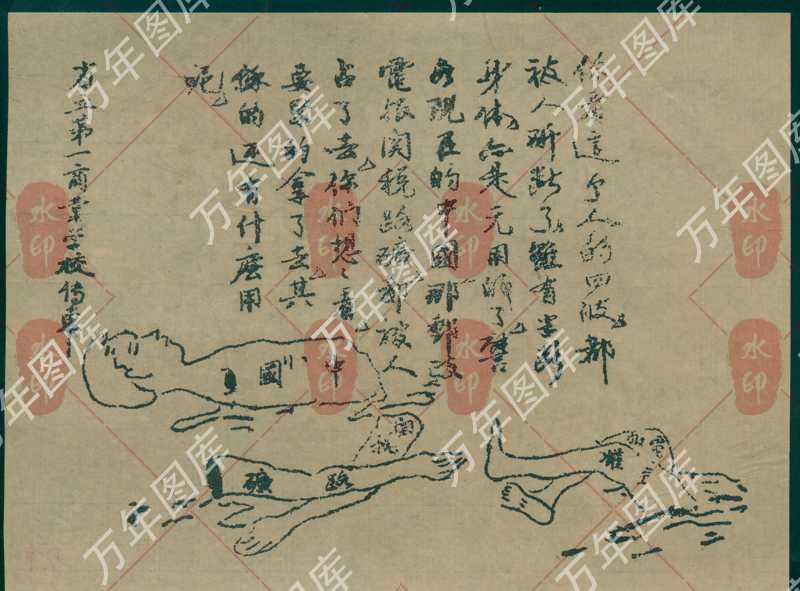 你看這个人的四肢都
被人斫斷了雖有
身體亦是无用的了譬
如現在的中國那郵政
電報関稅路礦都被人
占了去你們想々看
要緊的拿了去其
餘的还有什麽用
呢
省立第一商業学校傳单
中國
関稅
路礦
電
權
万年图库
水印